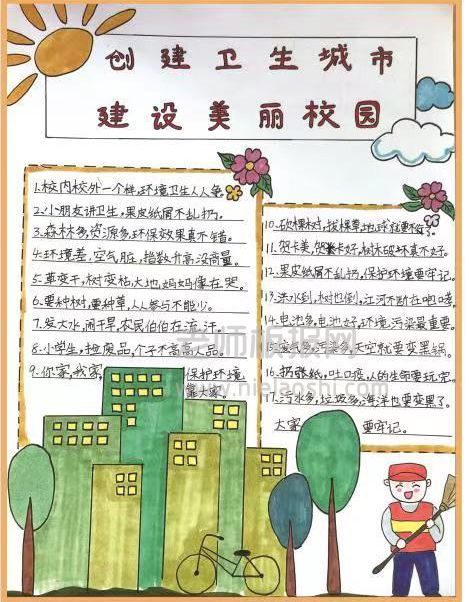 创建卫生城市
建设美丽校园
1.校内校外一个样,环境卫生人人争。
2.小朋友讲卫生,果皮纸屑不乱扔。
3.森林多,资源多,环保效果真不错。
4.环境差,空气脏,指数升高没商量。
5.草变干,树变枯,大地妈妈像在哭。
6.要种树,要种草,人人参与不能少。
7.发大水,闹干旱,农民伯伯在流汗。
8.小学生,捡废品,个子不高高人品。
9.你家,我家,保护环境
靠大家。
10.砍棵树,拔棵草,地球就更不好
11.贺卡美,贺卡好,树木破坏真不好。
12.果皮纸屑不乱扔,保护环境要牢记。
13.洪水到,树也倒,江河不断在咆哮。
14.电池多,电池好,环境污染最重要。
天空就要变黑锅。
16.扔张纸,吐口痰,人的生命要玩完。
17.污水多,垃圾多,海洋也要变果了。
大家要牢记。
老师板报网
www.nielaoshi.com